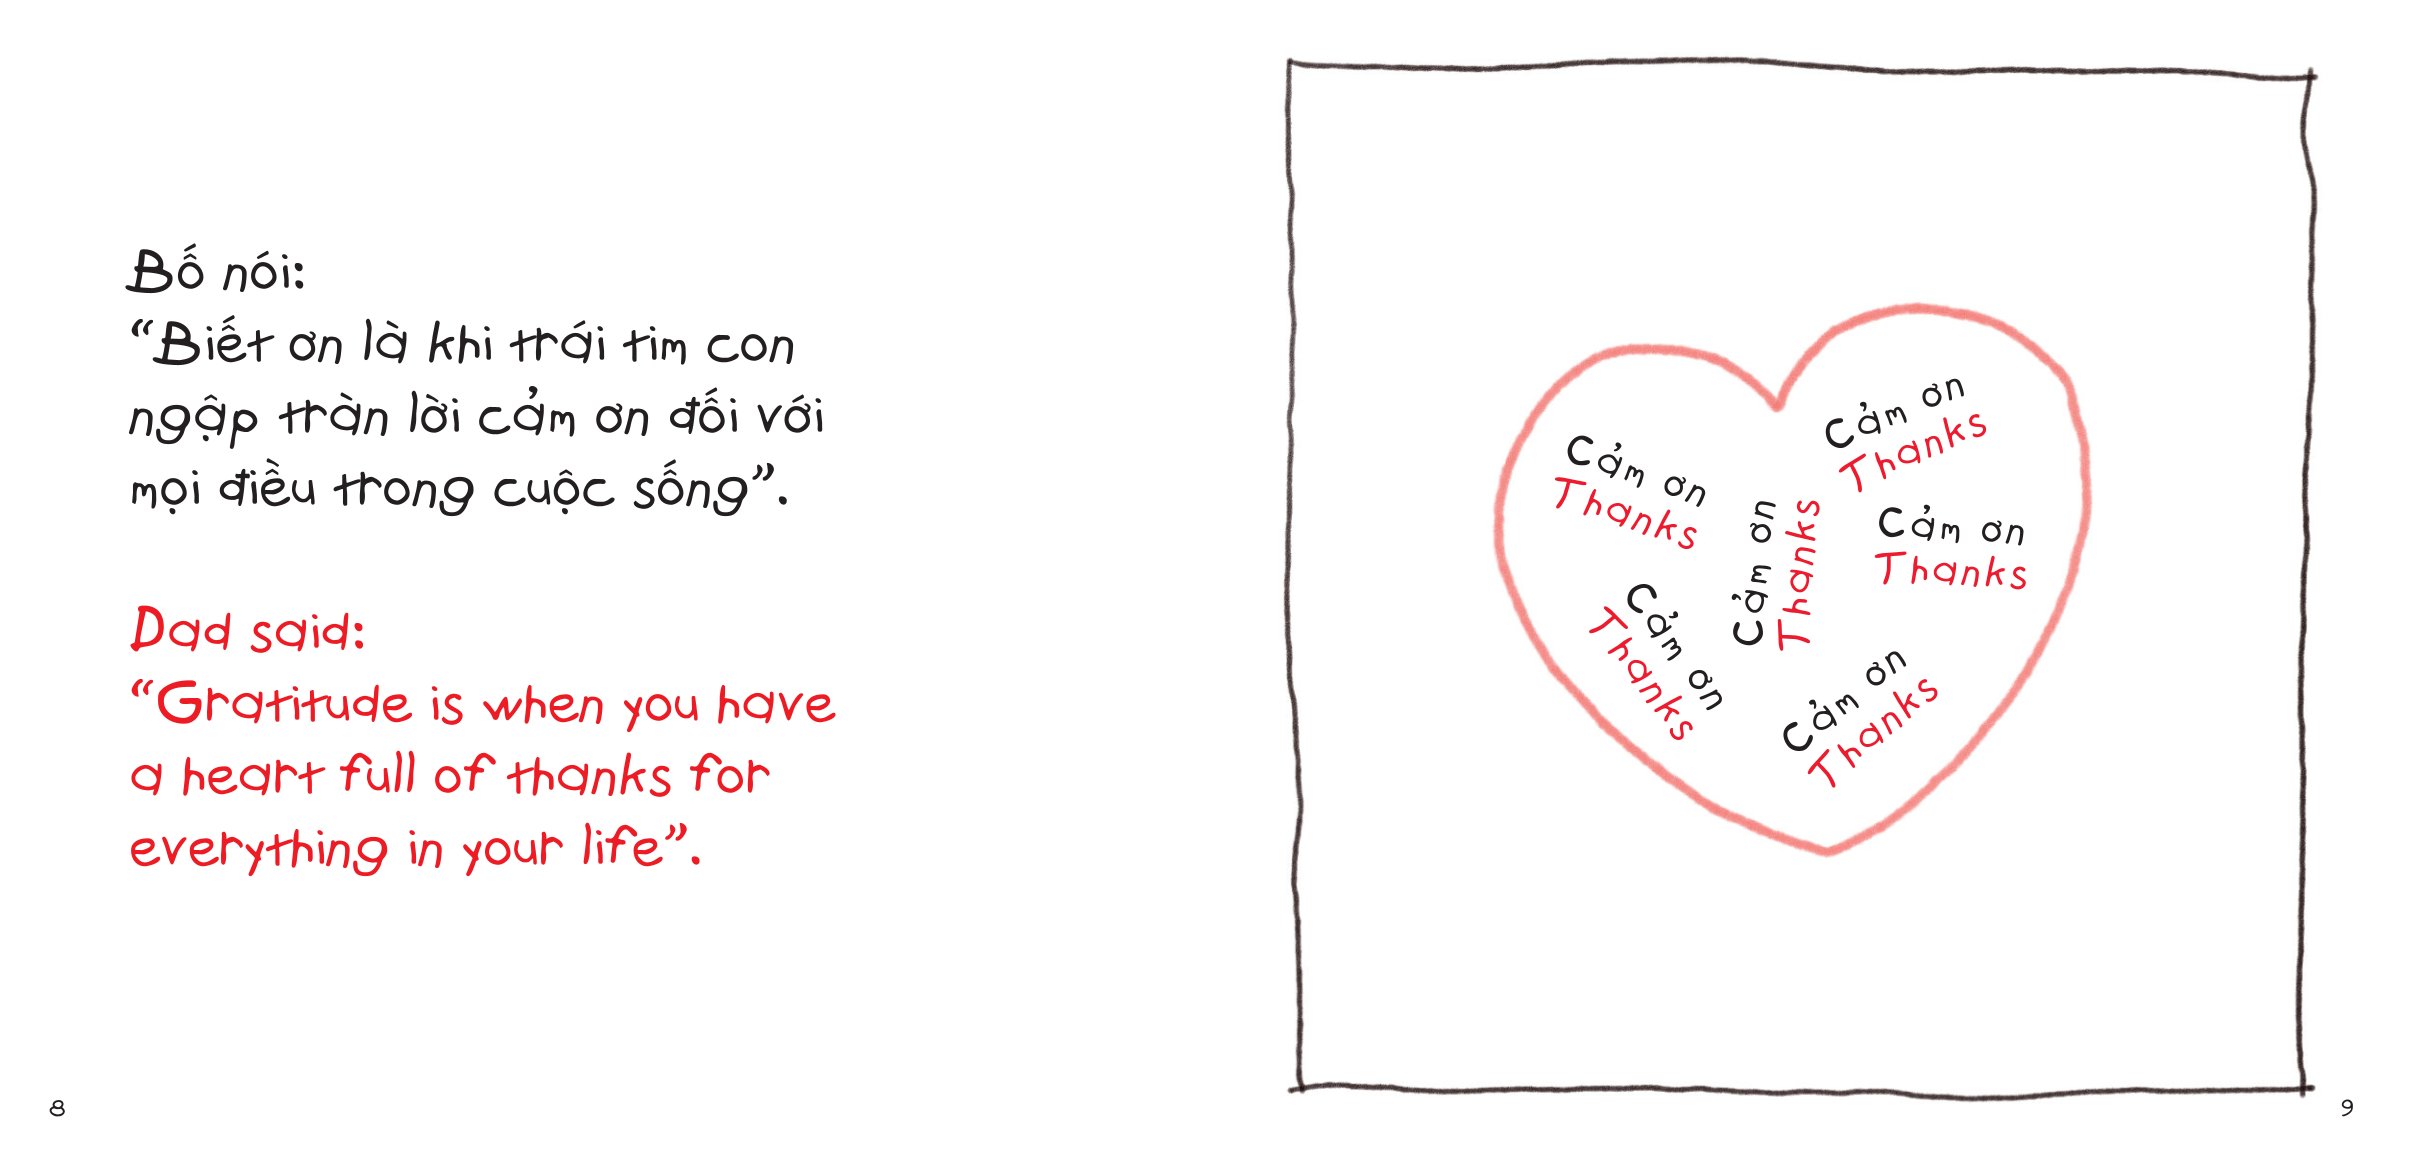 Bố nói:
“Biết ơn là khi trái tim con
ngập tràn lời cảm ơn đối với
mọi điều trong cuộc sống”.
Dad said:
“Gratitude is when you have
a heart full of thanks for
everything in your life”.
8
Cảm ơn
Thanks
Cảm ơn
Thanks
Cảm ơn
Thanks
Cảm ơn
Thanks
Cảm ơn
Thanks
Cảm ơn
Thanks
9